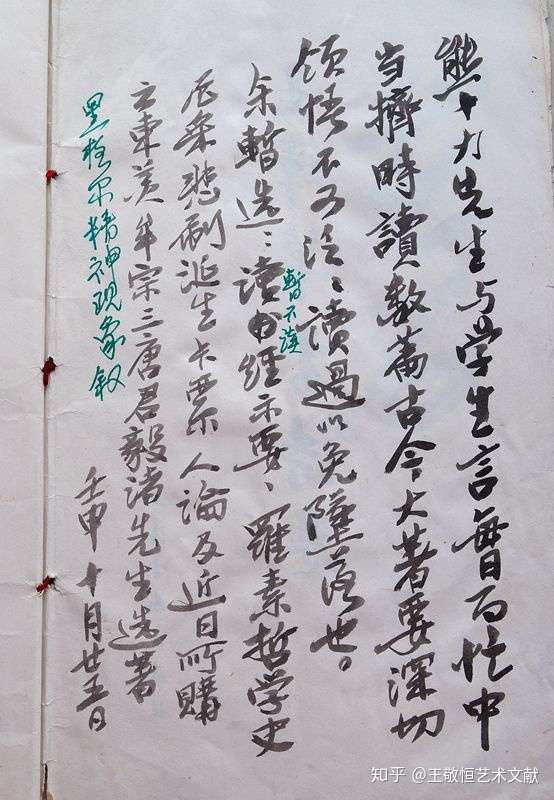 熊十力先生与学生言每日百忙中
当擠時讀数篇古今大著要深切
领悟不可泛泛讀過以免墜落也。
余暫选：读经示要、羅素哲学史
暫不讀
尼采悲剧诞生卡西尔人论及近日所購
方東美牟宗三唐君毅诸先生选著
黑格尔精神现象叙
壬申十月廿五日
知乎 @王敬恒艺术文献